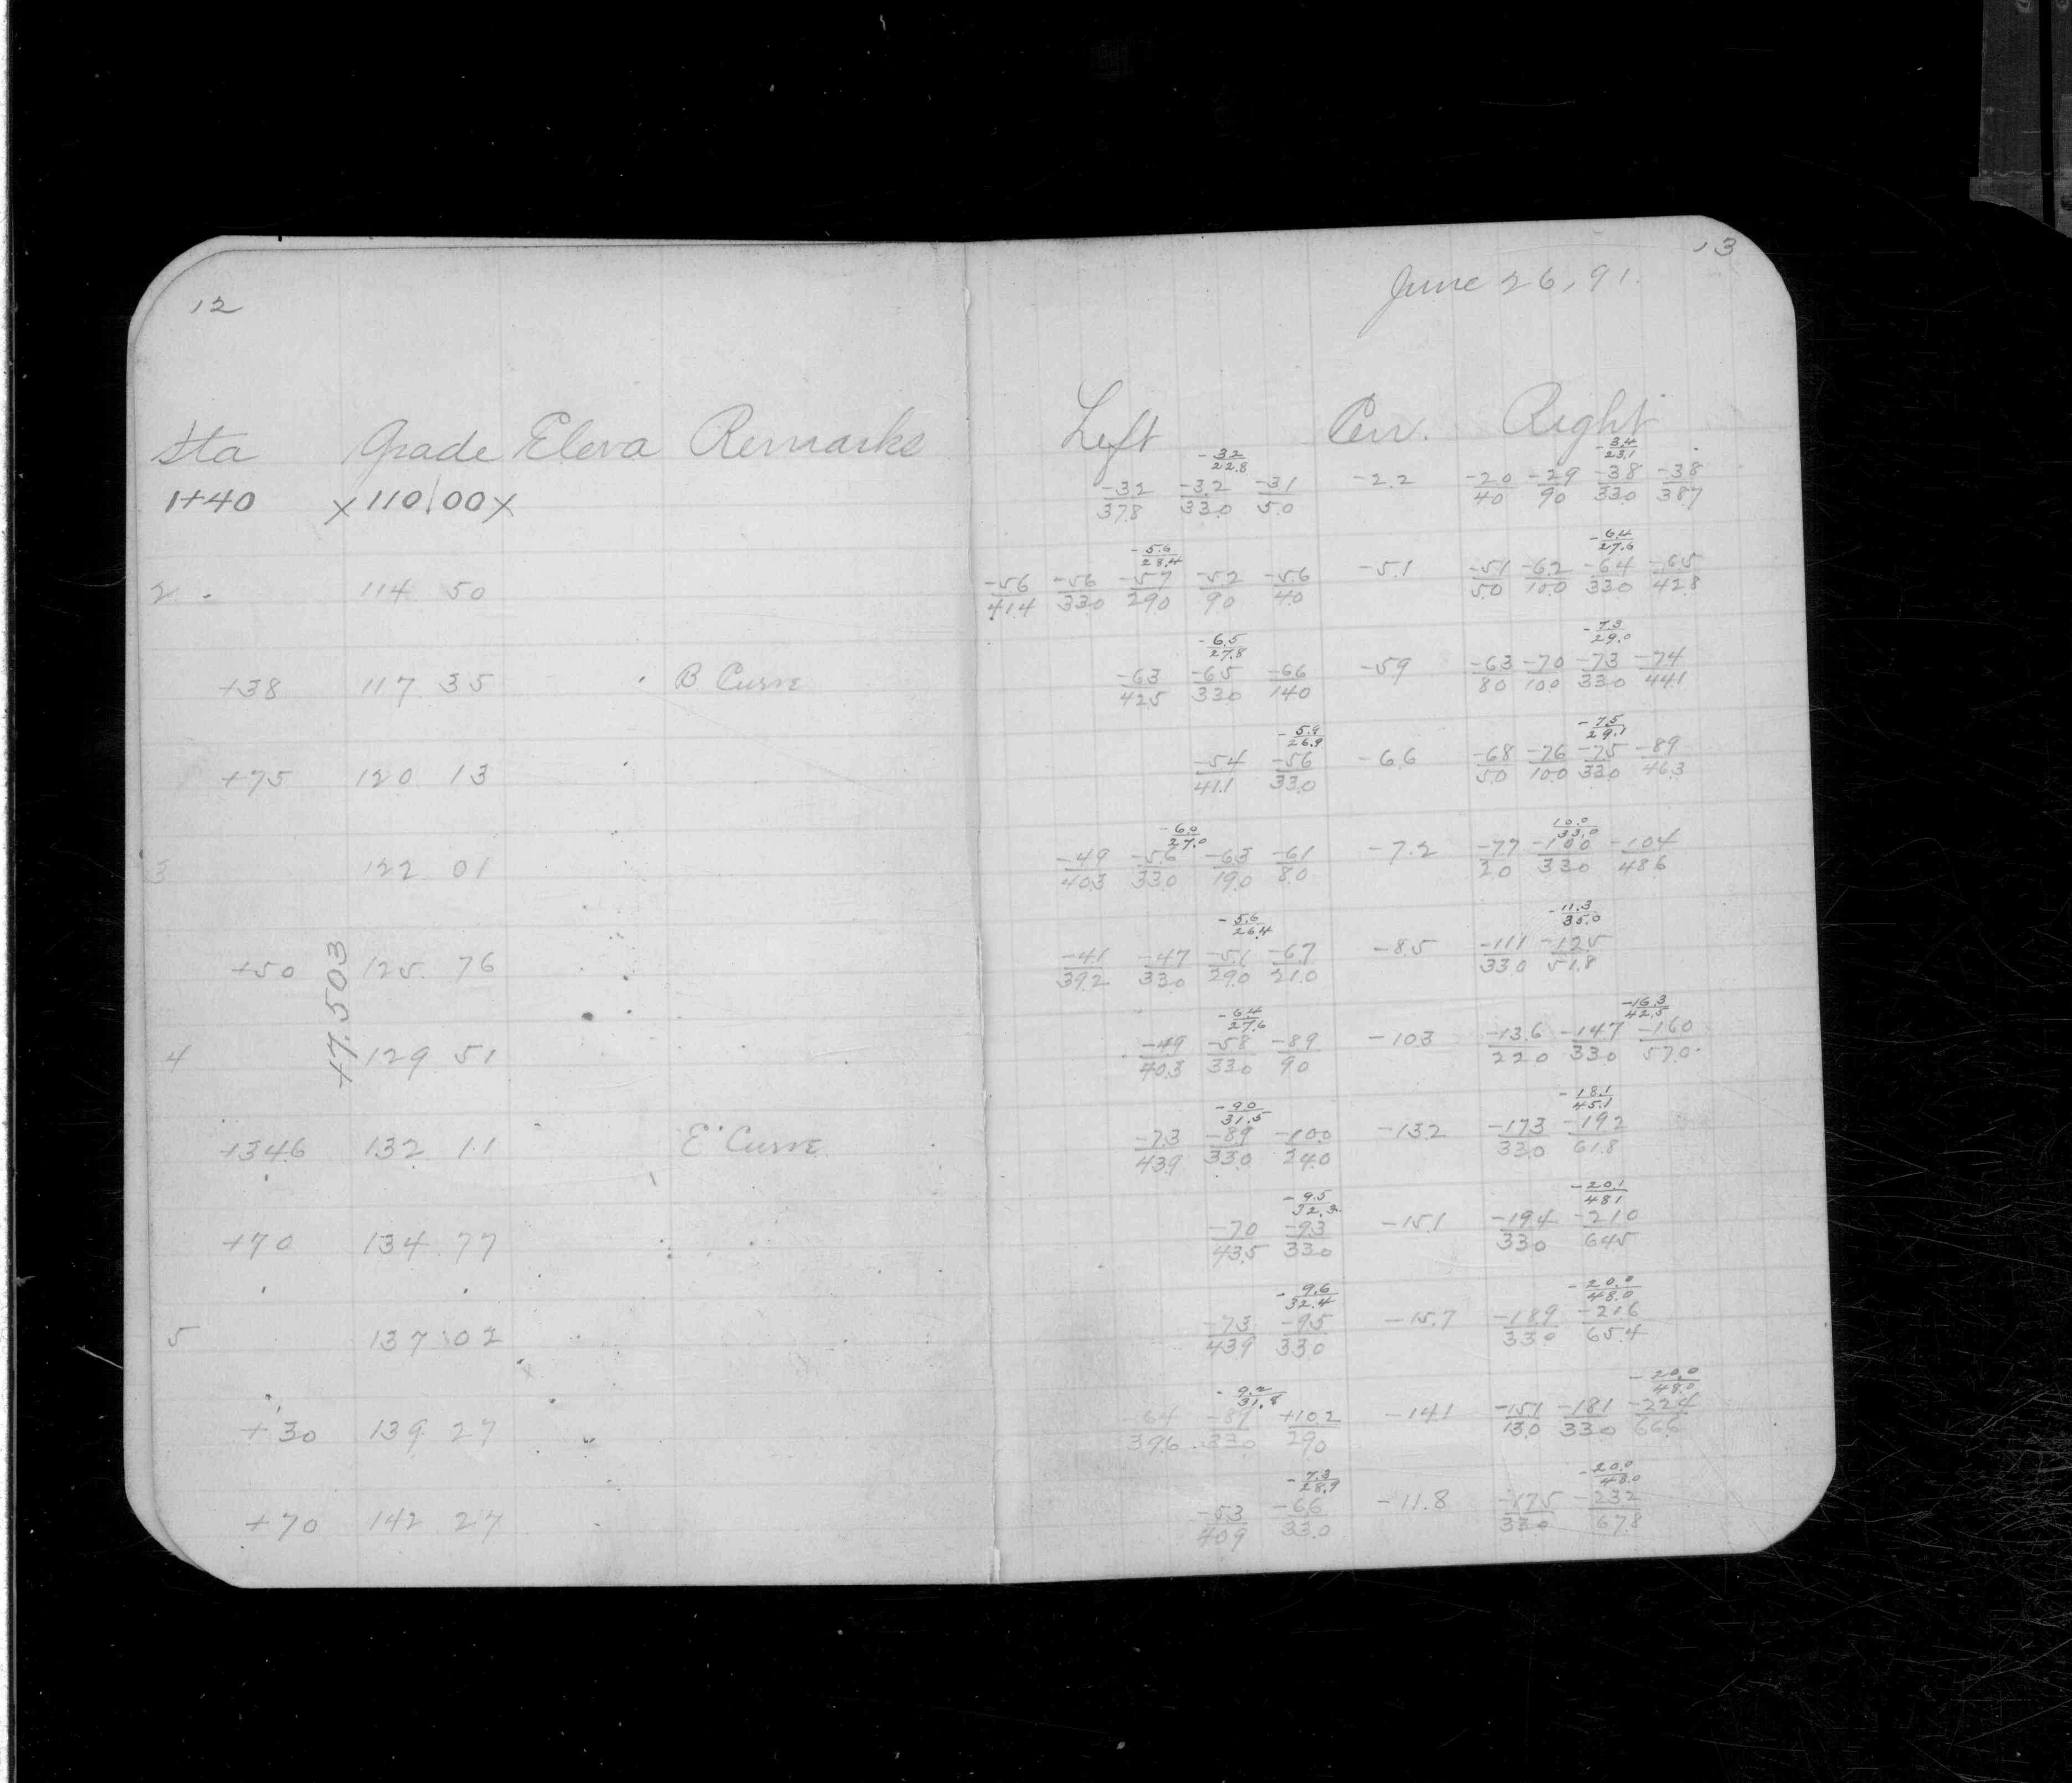 12
Sta Grade Eleva Remarks
1+40 x110.00x
2 114 50
+38 117 35 B Curve
+75 120 13
3 122 01
+50 125 76
+7.503
4 129 51
+34.6 132 11 E Curve
+70 134 77
5 137 02
+30 139 27
+70 142 27
13
June 26, 91.
Left Cen. Right
-3.2/22.8 -3.4/23.1
-3.2/37.8 -3.2/33.0 -3.1/5.0 -2.2 -2.0/4.0 -2.9/9.0 -3.8/33.0 -3.8/38.7
-5.6/28.4 -6.4/27.6
-5.6/41.4 -5.6/33.0 -5.7/29.0 -5.2/9.0 -5.6/4.0 -5.1 -5.1/5.0 -6.2/10.0 -6.4/33.0 -6.5/42.8
-6.5/27.8 -7.3/29.0
-6.3/42.5 -6.5/33.0 -6.6/14.0 -5.9 -6.3/8.0 -7.0/10.0 -7.3/33.0 -7.4/44.1
-5.9/26.9 -7.5/29.1
-5.4/41.1 -5.6/33.0 -6.6 -6.8/5.0 -7.6/10.0 -7.5/33.0 -8.9/46.3
-6.0/27.0 10.0/33.0
-4.9/40.3 -5.6/33.0 -6.3/19.0 -6.1/8.0 -7.2 -7.7/2.0 -10.0/33.0 -10.4/48.6
-5.6/26.4 -11.3/35.0
-4.1/39.2 -4.7/33.0 -5.1/29.0 -6.7/21.0 -8.5 -11.1/33.0 -12.5/51.8
-6.4/27.6 -16.3/42.5
-4.9/40.3 -5.8/33.0 -8.9/9.0 -10.3 -13.6/22.0 -14.7/33.0 -16.0/57.0
-9.0/31.5 -18.1/45.1
-7.3/43.9 -8.9/33.0 -10.0/24.0 -13.2 -17.3/33.0 -19.2/61.8
-9.5/32.3 -20.1/48.1
-7.0/43.5 -9.3/33.0 -15.1 -19.4/33.0 -21.0/64.5
-9.6/32.4 -20.0/48.0
-7.3/43.9 -9.5/33.0 -15.7 -18.9/33.0 -21.6/65.4
-9.2/31.8 -20.0/48.0
-6.4/39.6 -8.9/33.0 +10.2/29.0 -14.1 -15.1/13.0 -18.1/33.0 -22.4/66.6
-7.3/28.9 -20.0/48.0
-5.3/40.9 -6.6/33.0 -11.8 -17.5/33.0 -23.2/67.8